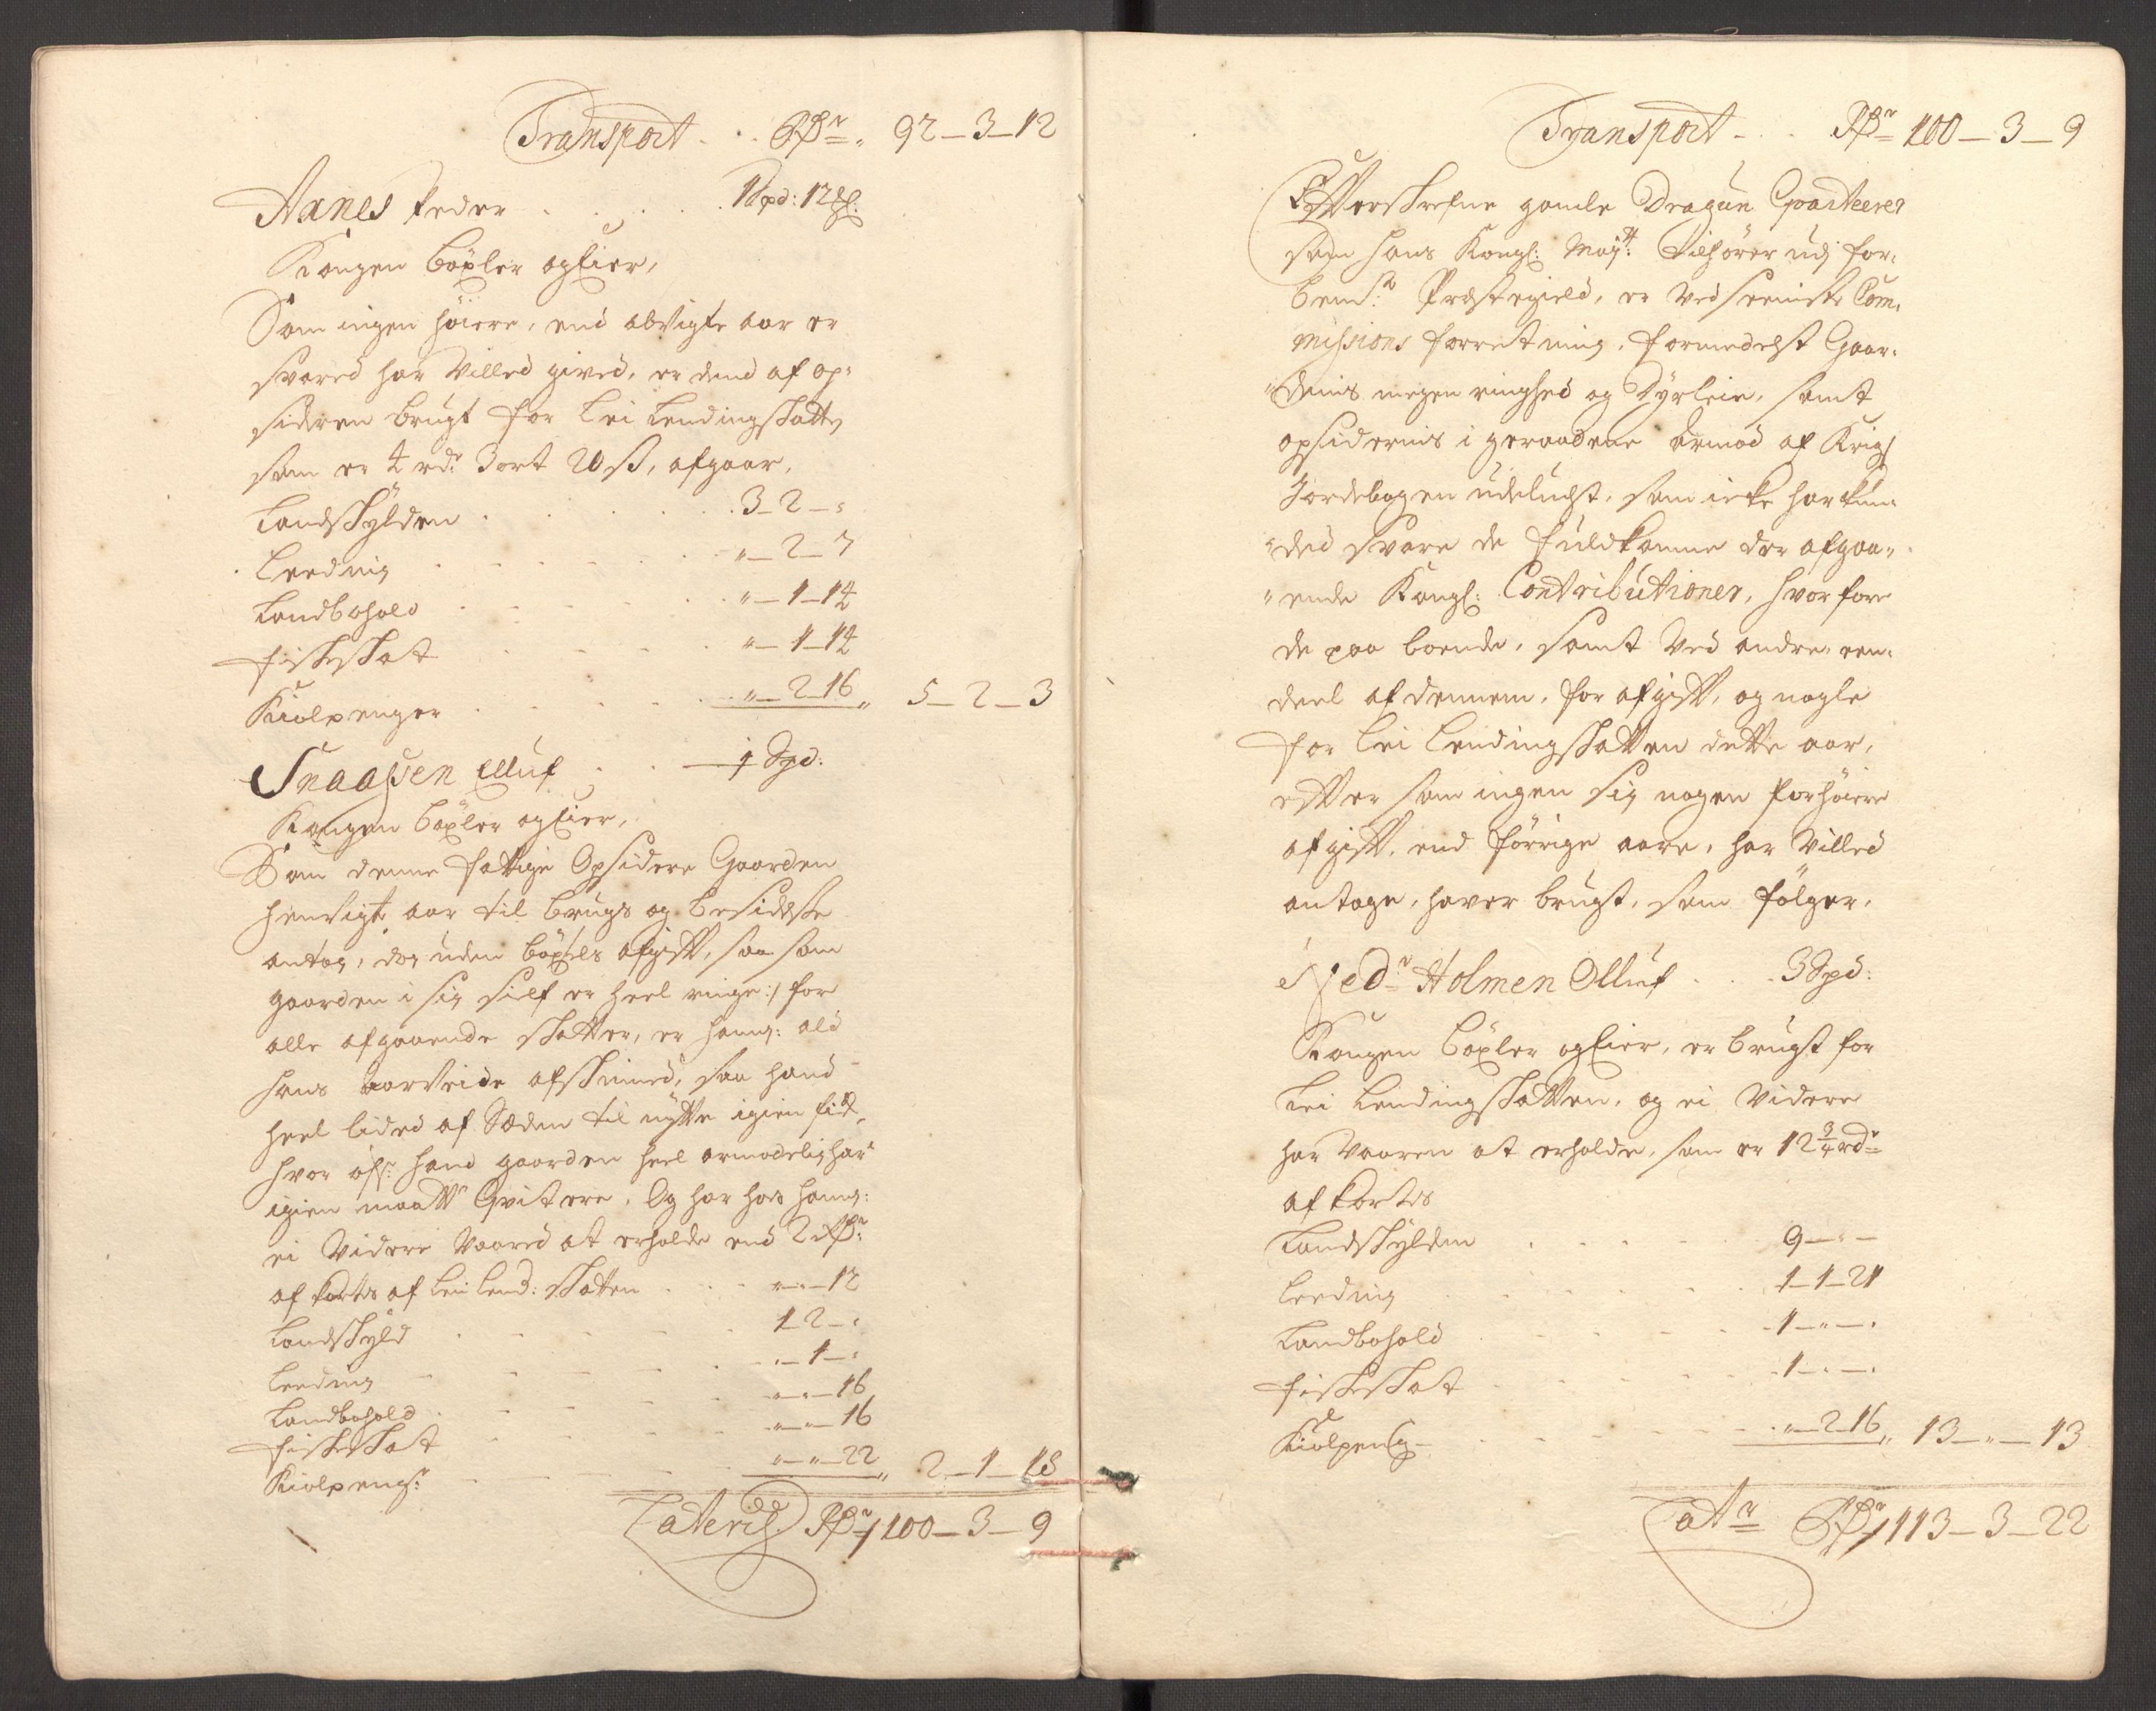 Transport - . Rdr. 92-3-12
Aanes Peder . . . . 1 Spd: 12 ℔:
Kongen böxler og Eier,
Som ingen höiere, end abvigte aar er
svared har villed gived, er dend af op-
sideren brugt for Leilendingskatt,
som er 4 rdr 3 ort 20 ß, afgaar,
Landskylden . . . . 3-2-"
Leeding . . . . "-2-7
Landbohold . . . . "-1-14
fiskeskat . . . . "-1-14
Kiolpenger . . . . "-2-16 " 5-2-3
Snaasen Elluf . . - 1 Spd:
Kongen böxler og Eier,
Som denne fattige Opsidere Gaarden
henvigte aar til brugs og besiddelse
antog, dog uden böxels afgift, saa som
gaarden i sig sielf er heel ringe:/ for
alle afgaaende skatter, er hannß: ald
hans aarveide afskimed, saa hand
heel lided af Sæden til nytte igien fik,
hvor ofr: hand gaarden heel armodelig har
igien maatt qvitere, Og har hos hannß:
ei videre vaared at erholde end 2 Rdr:
afkortes af Leilend: skatten . . "-"-12
Landskyld . . . . 1-2-"
Leeding . . . . "-1-"
Landbohold . . . . "-"-16
fiskeskat . . . . "-"-16
Kiolpengr: . . . . "-"-22 " 2-1-18
Lateris Rdr 100-3-9
Transport - . . Rdr 100-3-9
Efterskrefne gamle Dragun Qvarteerer
som hans Kongl: Mayt: tilhörer udj for-
bemte: Præstegield, er ved seeniste Com-
missions forretning, formedelst Gaar-
denis megen ringhed og Dyrleie, samt
opsidernis i geraadene armod af Krigs
Jordebogen udelugt, som icke har kun-
ded svare de fuldkomne der afgaa-
ende Kongl: Contributioner, hvorfore
de paa boende, samt ved andre een-
deel af dennem, for afgift, og nogle
for Leilendingskatten dette aar,
efter som ingen sig nogen forhöiere
afgift, end forrige aare, har villed
antage, haver brugt, som fölger,
Nedr Holmen Olluf . . . 3 Spd:
Kongen böxler og Eier, er brugt for
Leilendingskatten, og ei videre
har vaaren at erholde, som er 12 3/4 rdr
afkortes
Landskylden . . . . 9-"-
Leeding . . . . 1-1-21
Landbohold . . . . 1-"-"
fiskeskat . . . . 1-"-"
Kiolpeng . . . . "-2-16 " 13-"-13
Latr Rdr 113-3-22